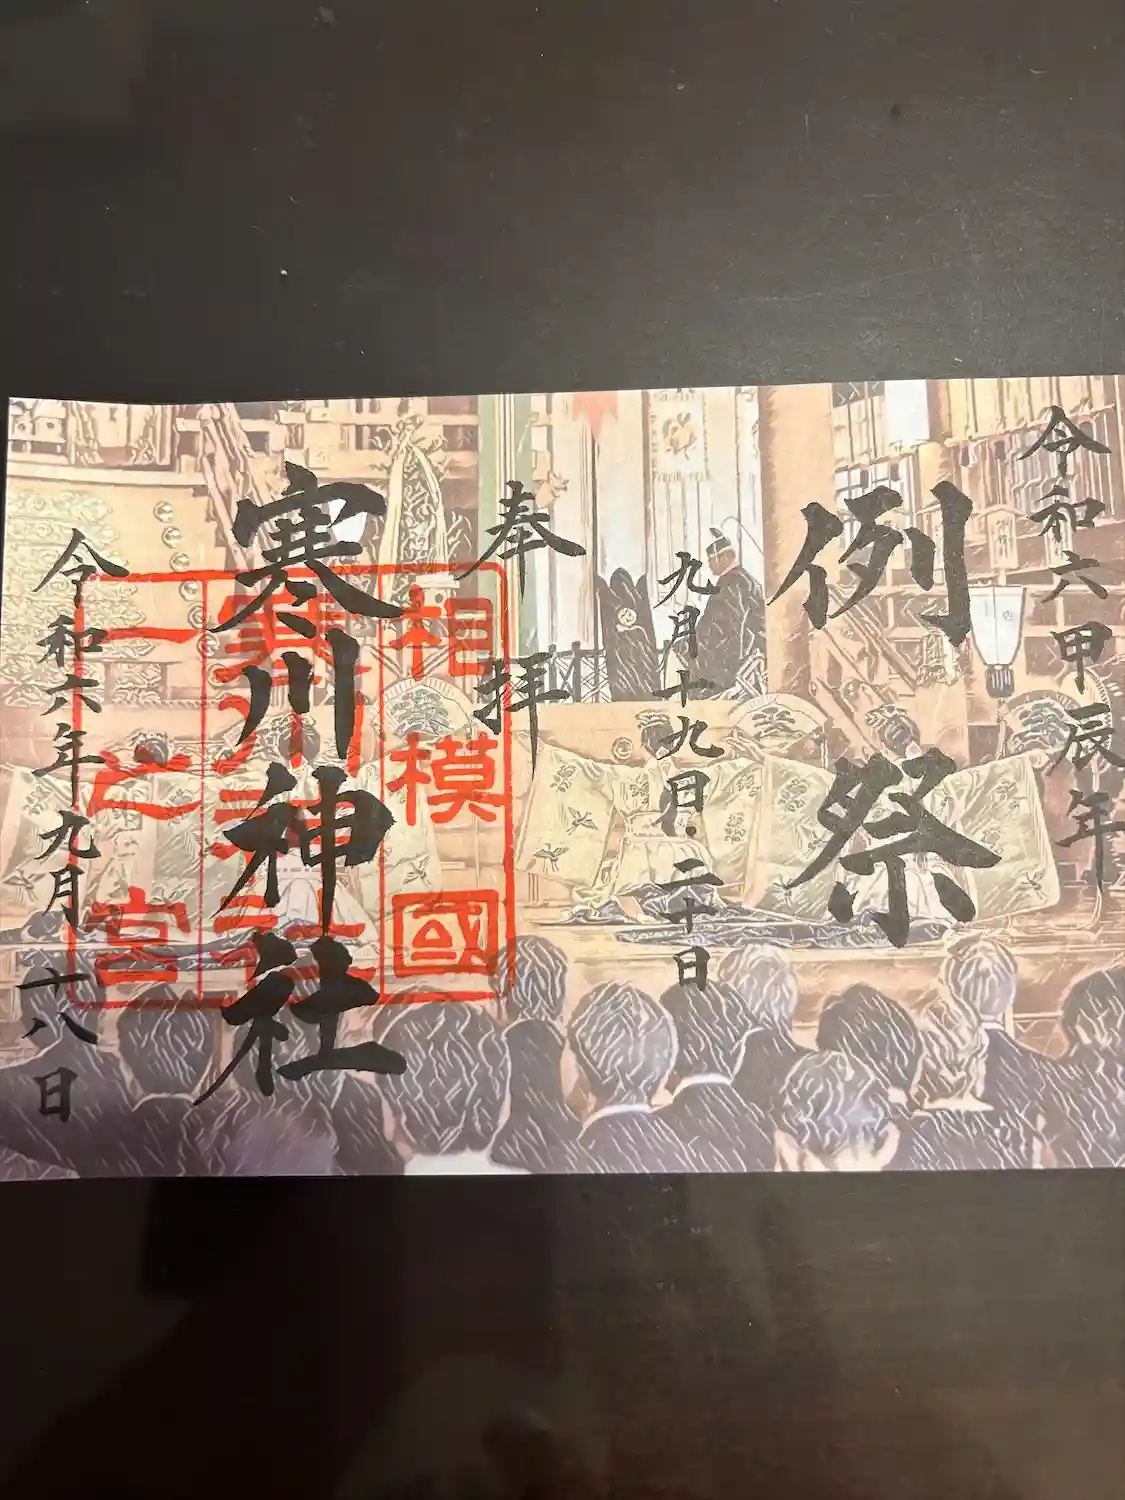 令和六甲辰年
例祭
九月十九日・二十日
奉拝
相模國
寒川神社
一之宮
寒川神社
令和六年九月十八日